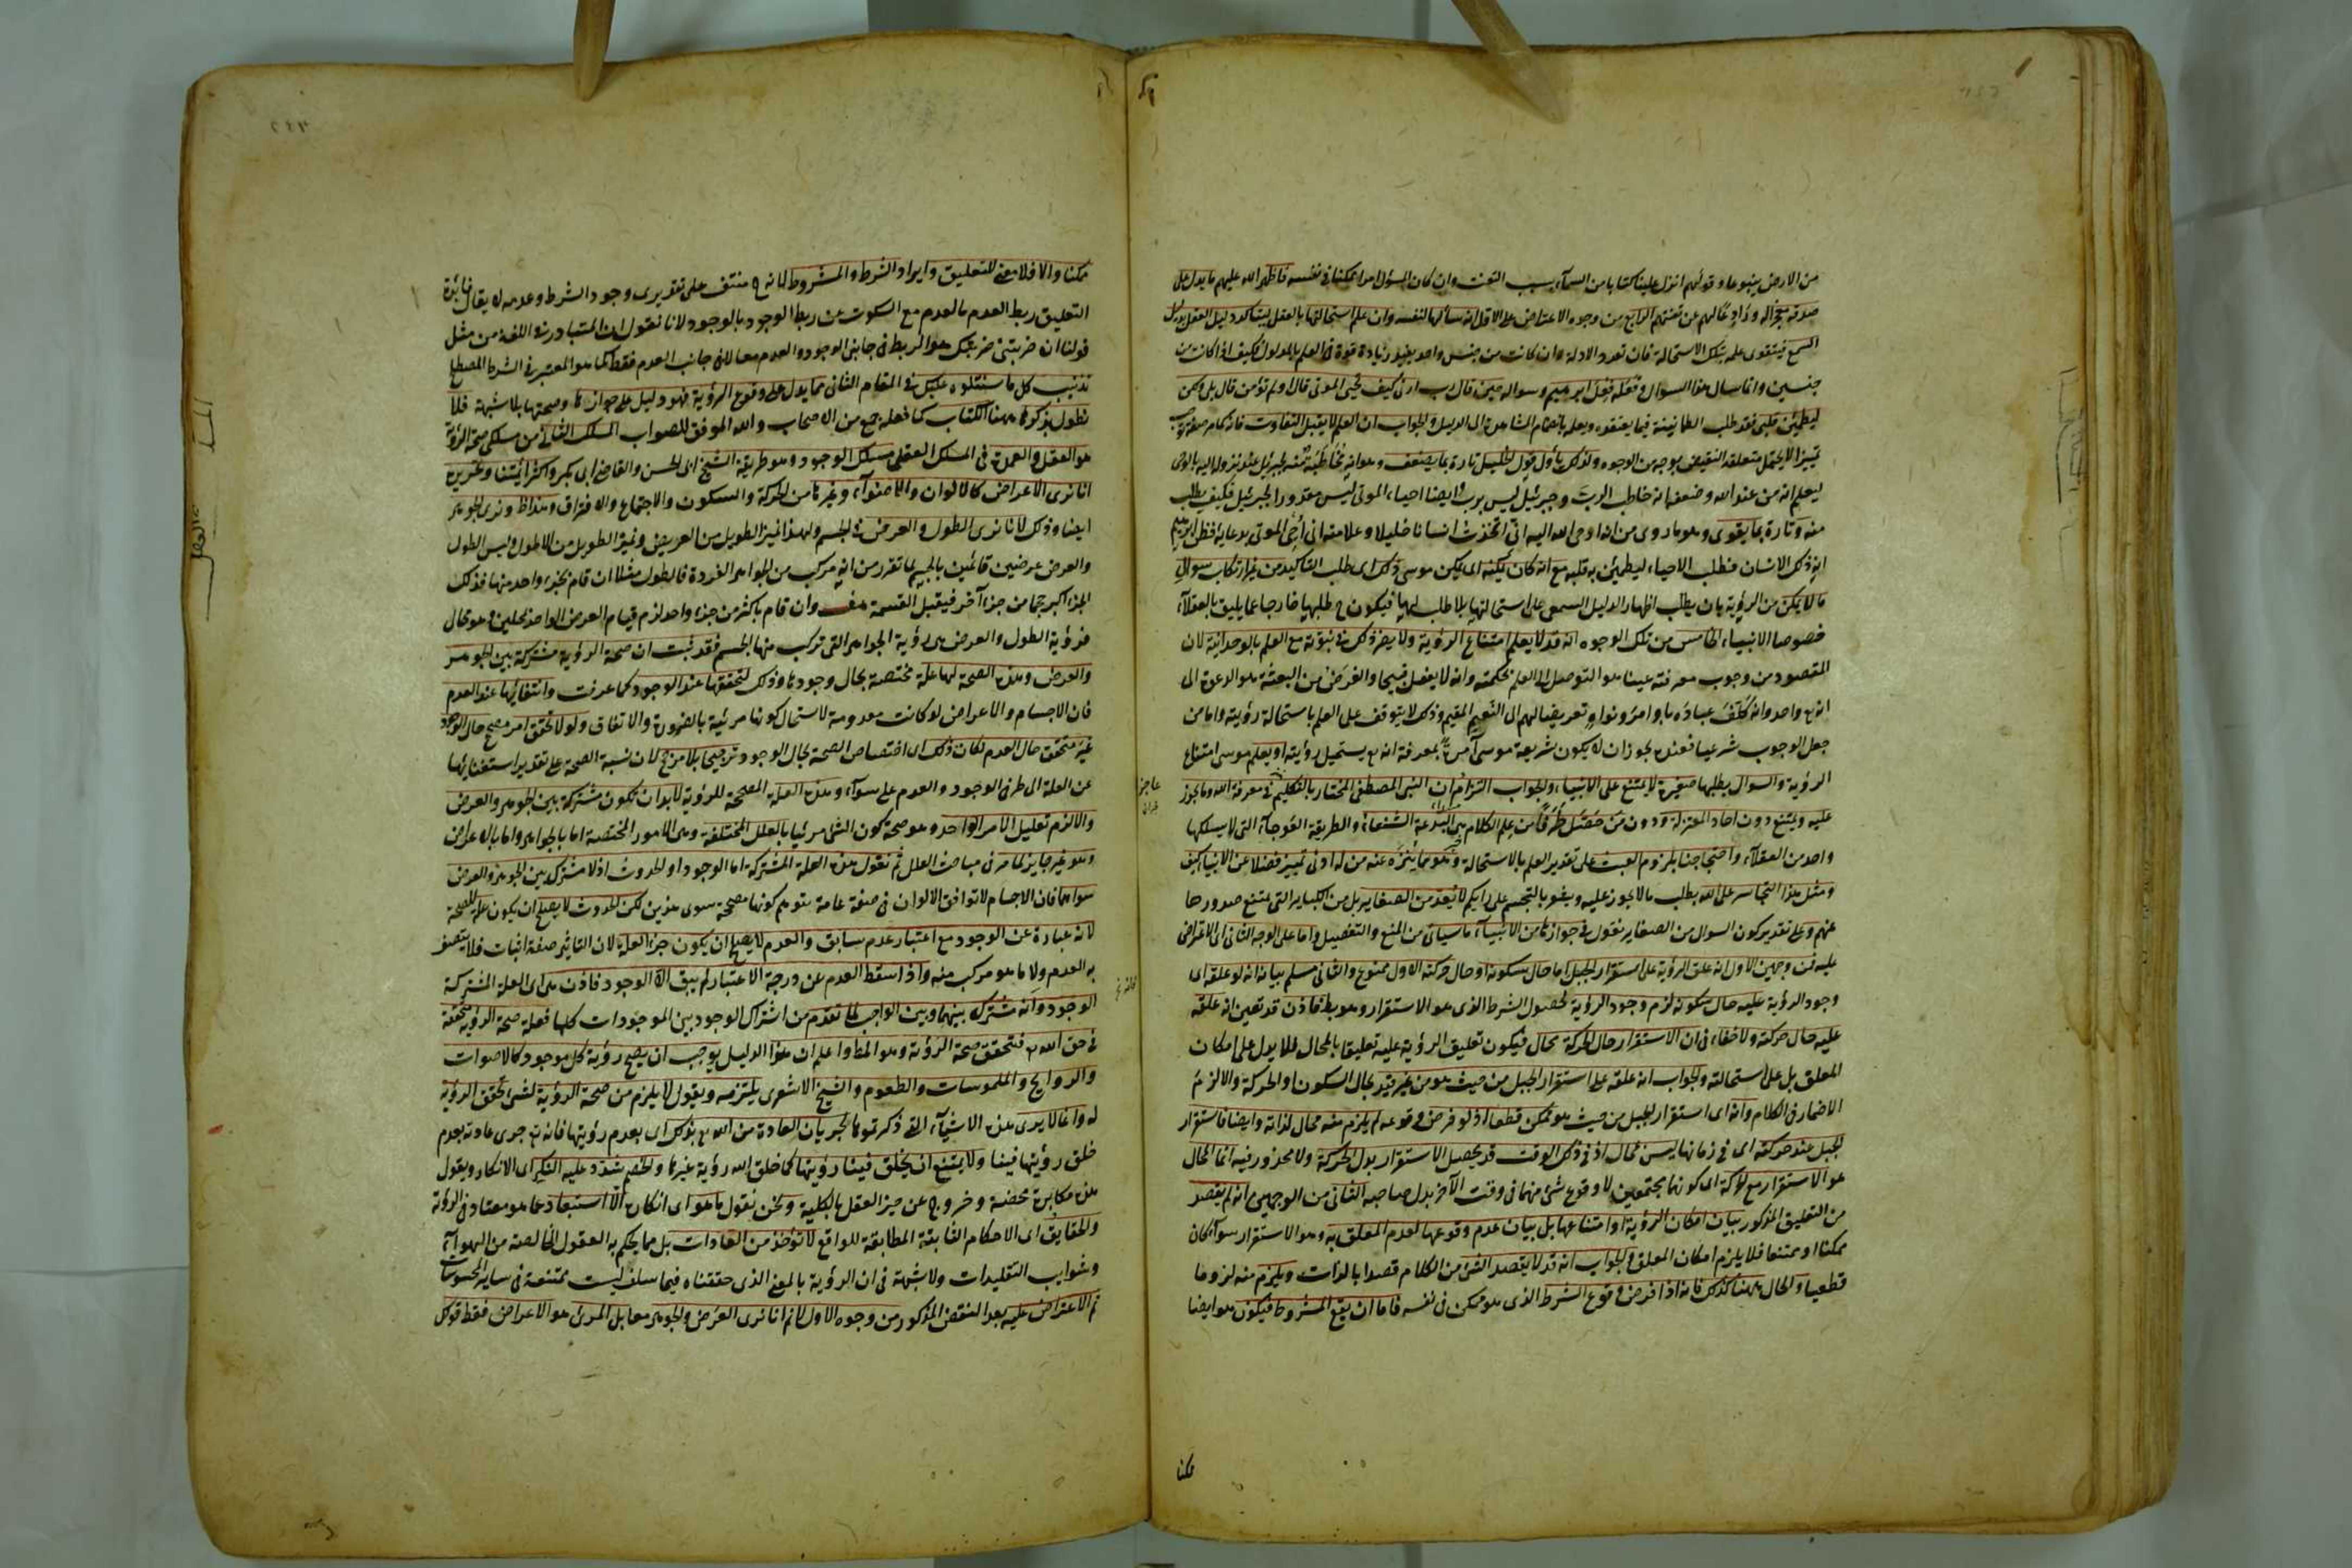 من الارض ينبوعا وقولهم انزل علينا كتابا من السمآء بسبب التعنت وان كان المسؤل امرا ممكنا في نفسه فاظهر الله عليهم ما يدل على
صدقه معجزا له ورادعا لهم عن تعنتهم الرابع من وجوه الاعتراض على الاول انه سألها لنفسه وان علم استحالتها بالعقل ليتأكد دليل العقل بدليل
السمع فيتقوى علمه بتلك الاستحالة فان تعدد الادلة وان كانت من جنس واحد يفيد زيادة قوة في العلم بالمدلول فكيف اذا كانت من
جنسين وانما سال هذا السوال وفعله فعل ابرهيم وسواله حين قال رب ارني كيف تحيى الموتى قال اولم تؤمن قال بلى ولكن
ليطمئن قلبي فقد طلب الطمانينة فيما يعتقده ويعلمه بانضمام المشاهدة الى الدليل والجواب ان العلم لا يقبل التفاوت فانه كما مر صفة توجب
تمييزا لا يحتمل متعلقه النقيض بوجه من الوجوه ولذلك يأول قول الخليل تارة بما يضعف وهو انه مخاطبة منه لجبرئيل عند نزوله اليه بالوحى
ليعلم انه من عند الله وضعف انه خاطب الرب وجبرئيل ليس برب وايضا احياء الموتى ليس مقدورا لجبرئيل فكيف يطلب
منه وتارة بما يقوى وهو ما روى من انه اوحى الله اليه انى اتخذت انسانا خليلا وعلامته انى احى الموتى بدعايه فظن ابرهيم
انه ذلك الانسان فطلب الاحياء ليطمئن به قلبه مع انه كان يمكنه اى يمكن موسى ذلك اى طلب التأكيد من غير ارتكاب سوال
ما لا يمكن من الرؤية بان يطلب اظهار الدليل السمعى على استحالتها بلا طلب لها فيكون ح طلبها خارجا عما يليق بالعقلاء
خصوصا الانبياء الخامس من تلك الوجوه انه قد لا يعلم امتناع الرؤية ولا يضر ذلك في نبوته مع العلم بالوحدانية لان
المقصود من وجوب معرفته عينا هو التوصل الى العلم بحكمته وانه لا يفعل قبيحا والغرض من البعثة هو الدعوة الى
انه تع واحد وانه كلف عباده باوامر ونواه تعريضا لهم الى النعيم المقيم وذلك لا يتوقف على العلم باستحالة رؤيته واما من
جعل الوجوب شرعيا فعنده يجوز ان لا يكون شريعة موسى آمرة بمعرفة انه تع يستحيل رؤيته او يعلم موسى امتناع
الرؤية والسوال بطلبها صغيرة لا يمتنع على الانبياء والجواب التزام ان النبى المصطفى المختار بالتكليم في معرفة الله وما يجوز
عليه ويمتنع دون احاد المعتزلة ودون من حصل طرفا من علم الكلام هي البدعة الشنعاء والطريقة العوجاء التى لا يسلكها
واحد من العقلاء واحتجاجنا بلزوم العبث على تقدير العلم بالاستحالة وهو مما يتنزه عنه من له ادنى تمييز فضلا عن الانبيا كيف
ومثل هذا التجاسر على الله بطلب ما لا يجوز عليه ويشعر بالتجسيم على رايكم لا يعد من الصغاير بل من الكباير التى يمتنع صدورها
عنهم وعلى تقدير كون السوال من الصغاير نقول في جوازها من الانبياء ما سياتى من المنع والتفصيل واما على الوجه الثانى اى الاعتراض
عليه فمن وجهين الاول انه علق الرؤية على استقرار الجبل اما حال سكونه او حال حركته الاول ممنوع والثانى مسلم بيانه انه لو علقه اى
وجود الرؤية عليه حال سكونه لزم وجود الرؤية لحصول الشرط الذى هو الاستقرار وهو بط فاذن قد تعين انه علقه
عليه حال حركته ولا خفاء فى ان الاستقرار حال الحركة محال فيكون تعليق الرؤية عليه تعليقا بالمحال فلا يدل على امكان
المعلق بل على استحالته والجواب انه علقه على استقرار الجبل من حيث هو من غير قيد بحال السكون او الحركة والا لزم
الاضمار فى الكلام وانه اى استقرار الجبل من حيث هو ممكن قطعا اذ لو فرض وقوعه لم يلزم منه محال لذاته وايضا فاستقرار
الجبل عند حركته اى فى زمانها ليس بمحال اذ فى ذلك الوقت قد يحصل الاستقرار بدل الحركة ولا محذور فيه انما المحال
هو الاستقرار مع الحركة اى كونهما مجتمعين لا وقوع شئ منهما فى وقت الآخر بدل صاحبه الثانى من الوجهين انه لم يقصد
من التعليق المذكور بيان امكان الرؤية او امتناعها بل بيان عدم وقوعها لعدم المعلق به وهو الاستقرار سوآء كان
ممكنا او ممتنعا فلا يلزم امكان المعلق والجواب انه قد لا يقصد الشئ من الكلام قصدا بالذات ويلزم منه لزوما
قطعيا والحال ههنا كذلك فانه اذا فرض وقوع الشرط الذى هو ممكن فى نفسه فاما ان يقع المشروط فيكون هو ايضا
ممكنا
ممكنا والا فلا معنى للتعليق وايراد الشرط والمشروط لانه ح منتف على تقديرى وجود الشرط وعدمه لا يقال فائدة
التعليق ربط العدم بالعدم مع السكوت عن ربط الوجود بالوجود لانا نقول ان المتبادر فى اللغة من مثل
قولنا ان ضربتنى ضربتك هو الربط فى جانبى الوجود والعدم معا لا فى جانب العدم فقط كما هو المعتبر فى الشرط المصطلح
تذنيب كل ما سنتلوه عليك فى المقام الثانى مما يدل على وقوع الرؤية فهو دليل على جوازها وصحتها بلا شبهة فلا
نطول بذكرها ههنا الكتاب كما فعله جمع من الاصحاب والله الموفق للصواب المسلك الثانى من مسلكى صحة الرؤية
هو العقل والعمدة فى المسلك العقلى مسلك الوجود وهو طريقة الشيخ ابى الحسن والقاضى ابى بكر واكثر ائمتنا وتحريره
انا نرى الاعراض كالالوان والاضوآء وغيرها من الحركة والسكون والاجتماع والافتراق وهذا ظ ونرى الجوهر
ايضا وذلك لانا نرى الطول والعرض فى الجسم ولهذا نميز الطويل من العريض ونميز الطويل من الاطول وليس الطول
والعرض عرضين قائمين بالجسم لما تقرر من انه مركب من الجواهر الفردة فالطول مثلا ان قام بجزء واحد منها فذلك
الجزء اكبر حجما من جزء آخر فيقبل القسمة هف وان قام باكثر من جزء واحد لزم قيام العرض الواحد بمحلين وهو محال
فرؤية الطول والعرض هى رؤية الجواهر التى تركب منها الجسم فقد ثبت ان صحة الرؤية مشتركة بين الجوهر
والعرض وهذه الصحة لها علة مختصة بحال وجودها وذلك لتحققها عند الوجود كما عرفت وانتفائها عند العدم
فان الاجسام والاعراض لو كانت معدومة لاستحال كونها مرئية بالضرورة والاتفاق ولولا تحقق امر مصحح حال الوجود
غير متحقق حال العدم لكان ذلك اى اختصاص الصحة بحال الوجود ترجيحا بلا مرجح لان نسبة الصحة على تقدير استغنائها
عن العلة الى طرفى الوجود والعدم على سوآء وهذه العلة المصححة للرؤية لا بد ان تكون مشتركة بين الجوهر والعرض
والا لزم تعليل الامر الواحد وهو صحة كون الشئ مرئيا بالعلل المختلفة وهى الامور المختصة اما بالجواهر واما بالاعراض
وهو غير جايز لما مر فى مباحث العلل ثم نقول هذه العلة المشتركة اما الوجود او الحدوث اذ لا مشترك بين الجوهر والعرض
سواهما فان الاجسام لا توافق الالوان فى صفة عامة يتوهم كونها مصححة سوى هذين لكن الحدوث لا يصلح ان يكون علة للصحة
لانه عبارة عن الوجود مع اعتبار عدم سابق والعدم لا يصلح ان يكون جزء العلة لان التاثير صفة اثبات فلا يتصف
به العدم ولا ما هو مركب منه واذا اسقط العدم عن درجة الاعتبار لم يبق الا الوجود فاذن هى اى العلة المشتركة
الوجود وانه مشترك بينهما وبين الواجب لما تقدم من اشتراك الوجود بين الموجودات كلها فعلة صحة الرؤية متحققة
فى حق الله تع فتحقق صحة الرؤية وهو المط واعلم ان هذا الدليل يوجب ان يصح رؤية كل موجود كالاصوات
والروايح والملموسات والطعوم والشيخ الاشعرى يلتزمه ويقول لا يلزم من صحة الرؤية لشئ تحقق الرؤية
له وانما لا يرى هذه الاشيآء التى ذكرتموها لجريان العادة من الله تع بذلك اى بعدم رؤيتها فانه تع جرى عادته بعدم
خلق رؤيتها فينا ولا يمتنع ان يخلق فينا رؤيتها كما خلق الله رؤية غيرها والخصم يشدد عليه النكير اى الانكار ويقول
هذه مكابرة محضة وخروج عن حيز العقل بالكلية ونحن نقول ما هو اى انكاره الا استبعاد عما هو معتاد فى الرؤية
والحقايق اى الاحكام الثابتة المطابقة للواقع لا تؤخذ من العادات بل مما يحكم به العقول الخالصة من الهوآء
وشوايب التقليدات ولا شبهة فى ان الرؤية بالمعنى الذى حققناه فيما سلف ليست ممتنعة فى ساير المحسوسات
ثم الاعتراض عليه بعد النقض المذكور من وجوه الاول لا نم انا نرى العرض والجوهر معا بل المرئى هو الاعراض فقط قولك